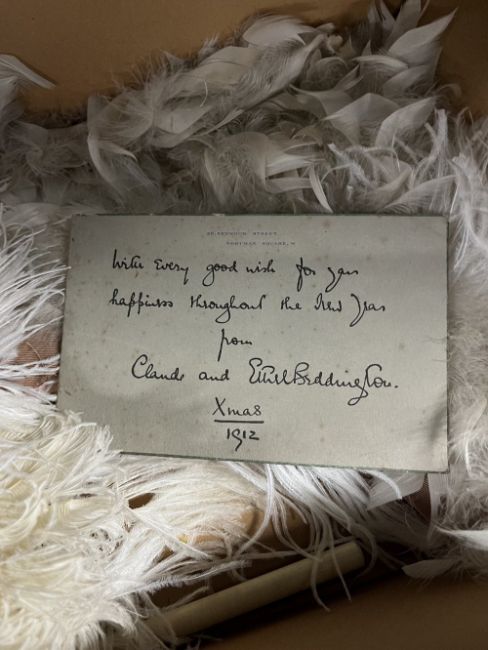 SEYMOUR STREET,
PORTMAN SQUARE, W.
With every good wish for your
happiness throughout the New Year
from
Claude and Ethel Beddington.
Xmas
1912